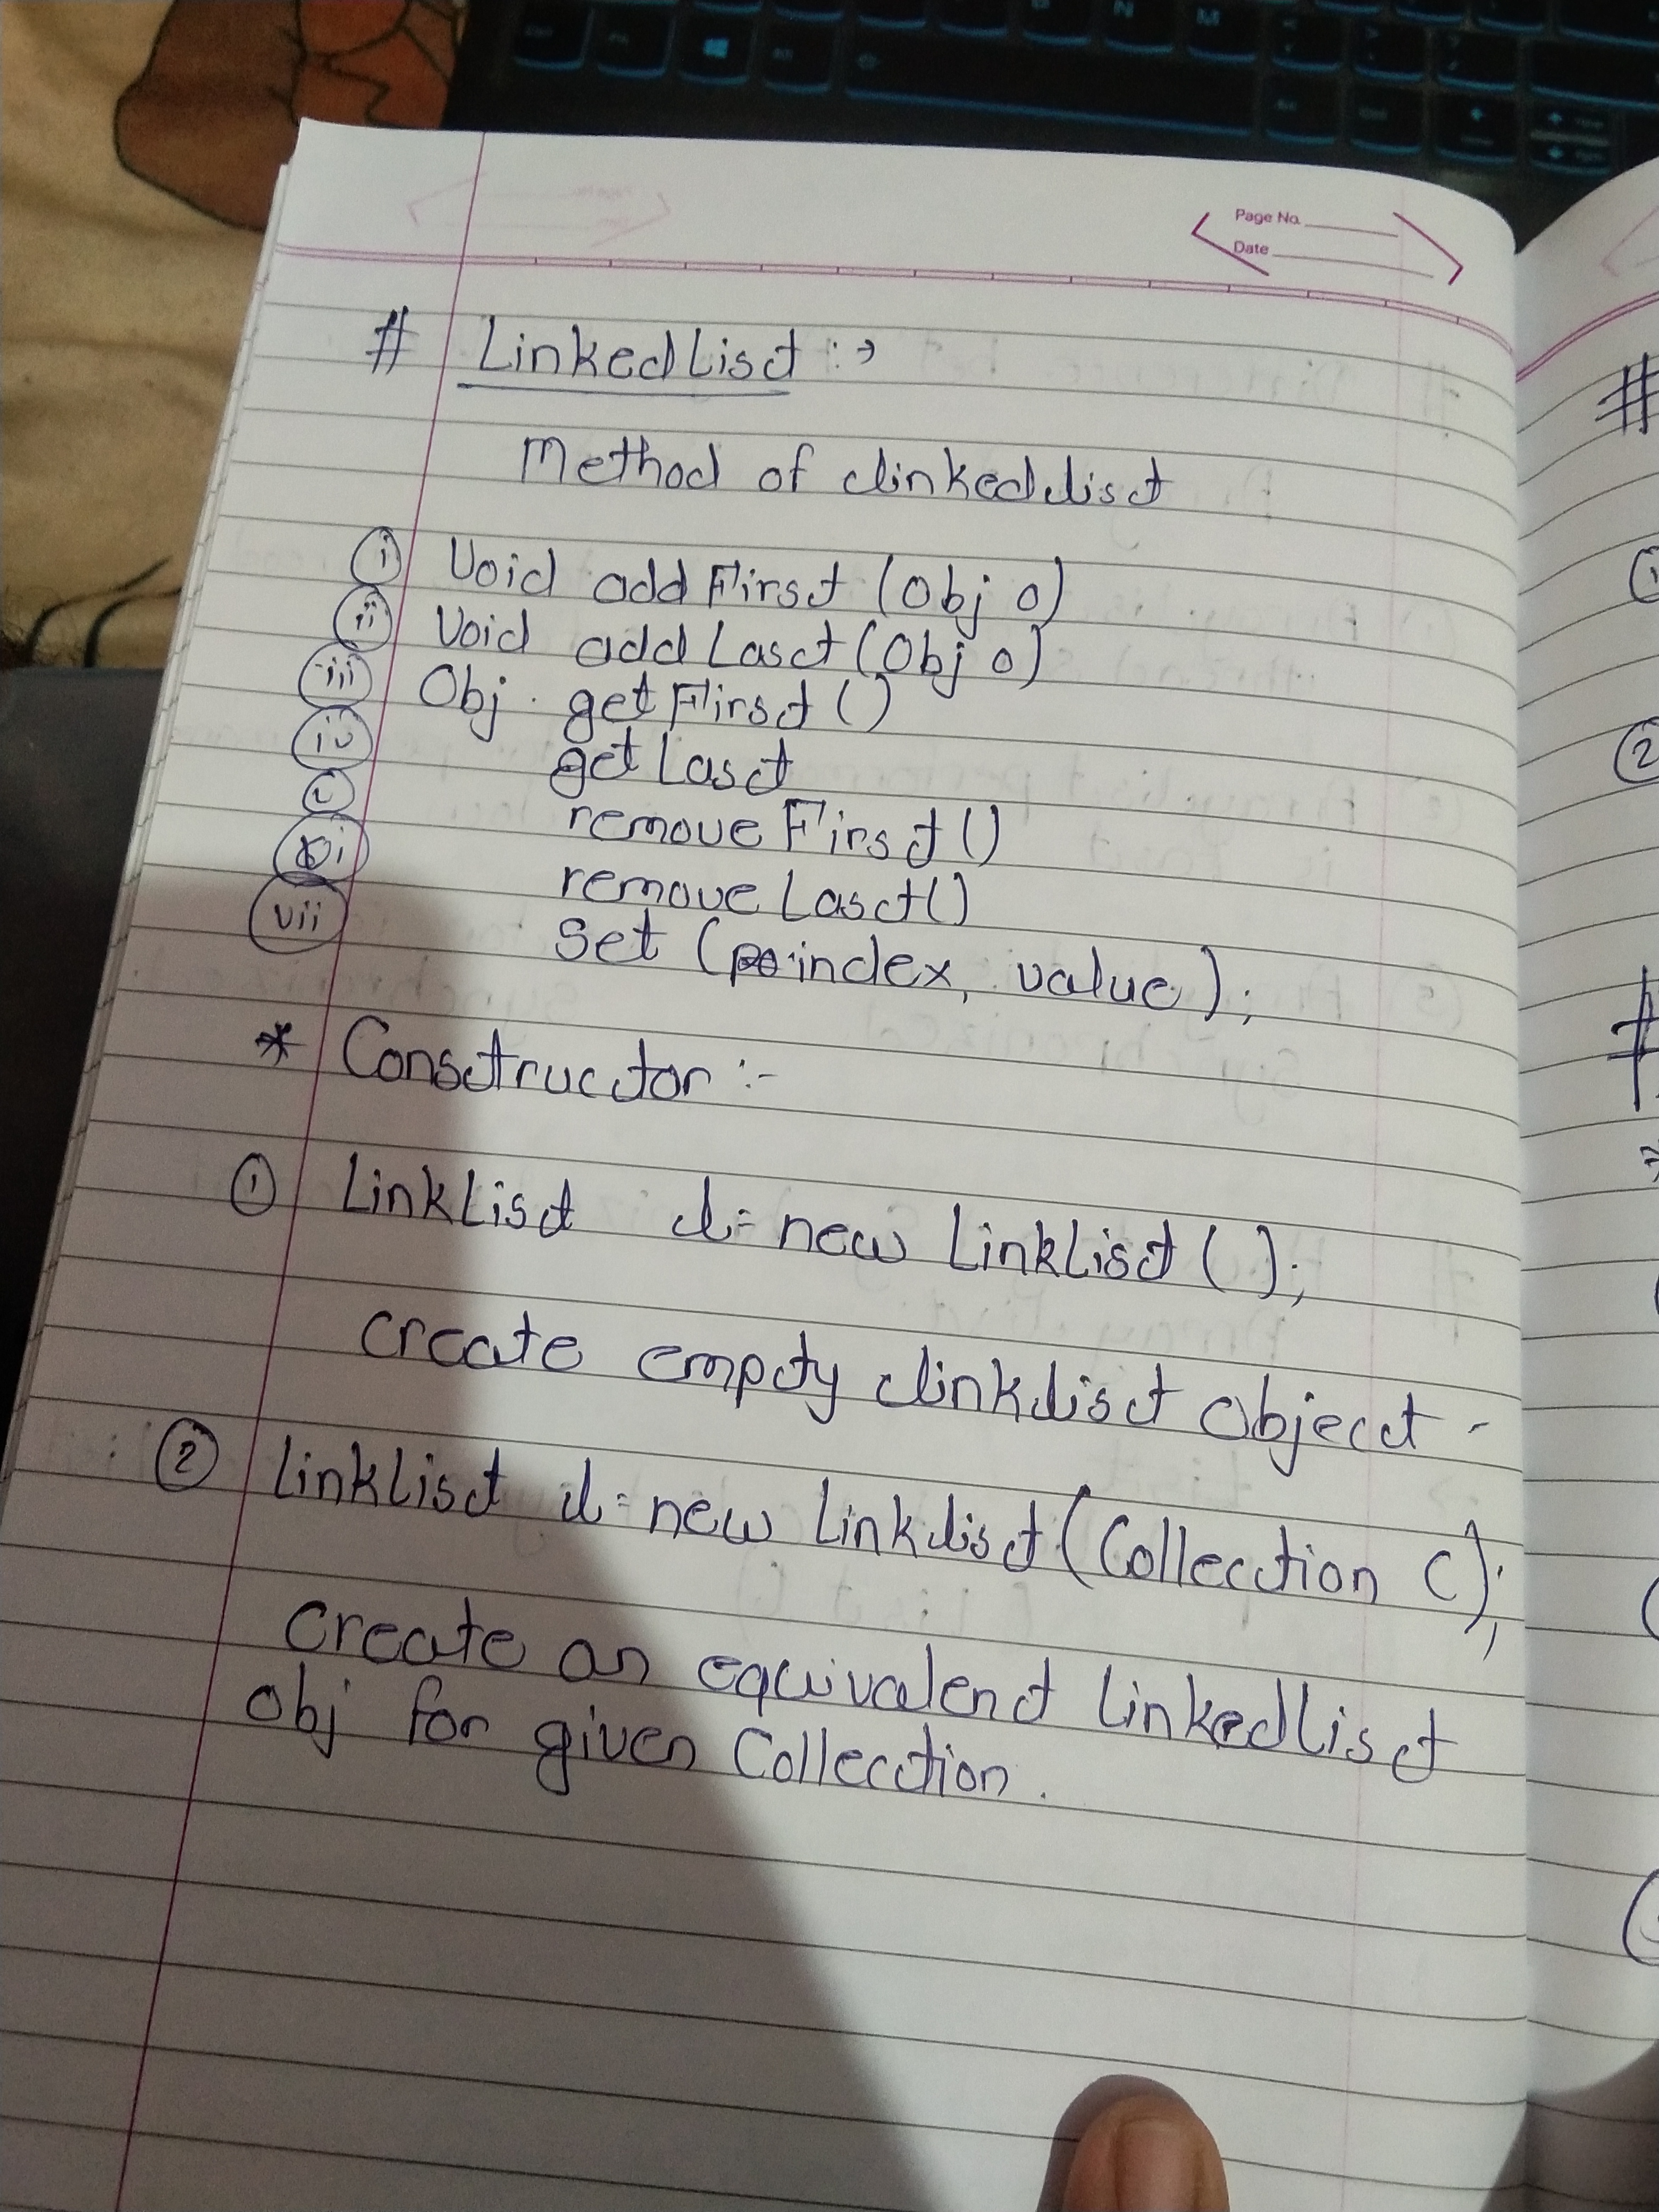 Page No.
Date
# LinkedList :→
Method of linkedlist
(i) Void addFirst (Obj o)
(ii) Void addLast (Obj o)
(iii) Obj. getFirst ()
(iv) getLast
(v) removeFirst ()
(vi) removeLast ()
(vii) set (index, value);
* Constructor :-
① LinkList l = new LinkList ( );
create empty linklist object -
② LinkList l = new Linklist (Collection C);
Create an equivalent LinkedList
obj for given Collection.
#
①
②
#
*